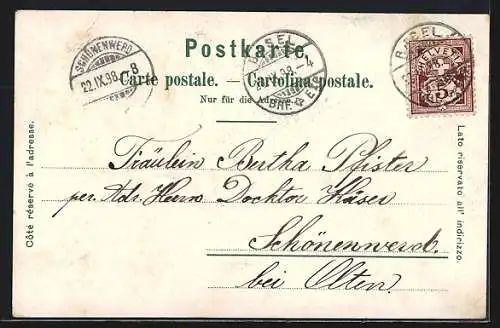 Postkarte.
Carte postale. — Cartolina postale.
Nur für die Adresse.
SCHÖNENWERD
22.IX.98.–8
BASEL
BRF.
BASEL
HELVETIA
15
Côté réservé à l'adresse.
Lato riservato all' indirizzo.
Fräulein Bertha Pfister
per. Adr. Herrn Docktor Käser
Schönenwerd.
bei Olten.